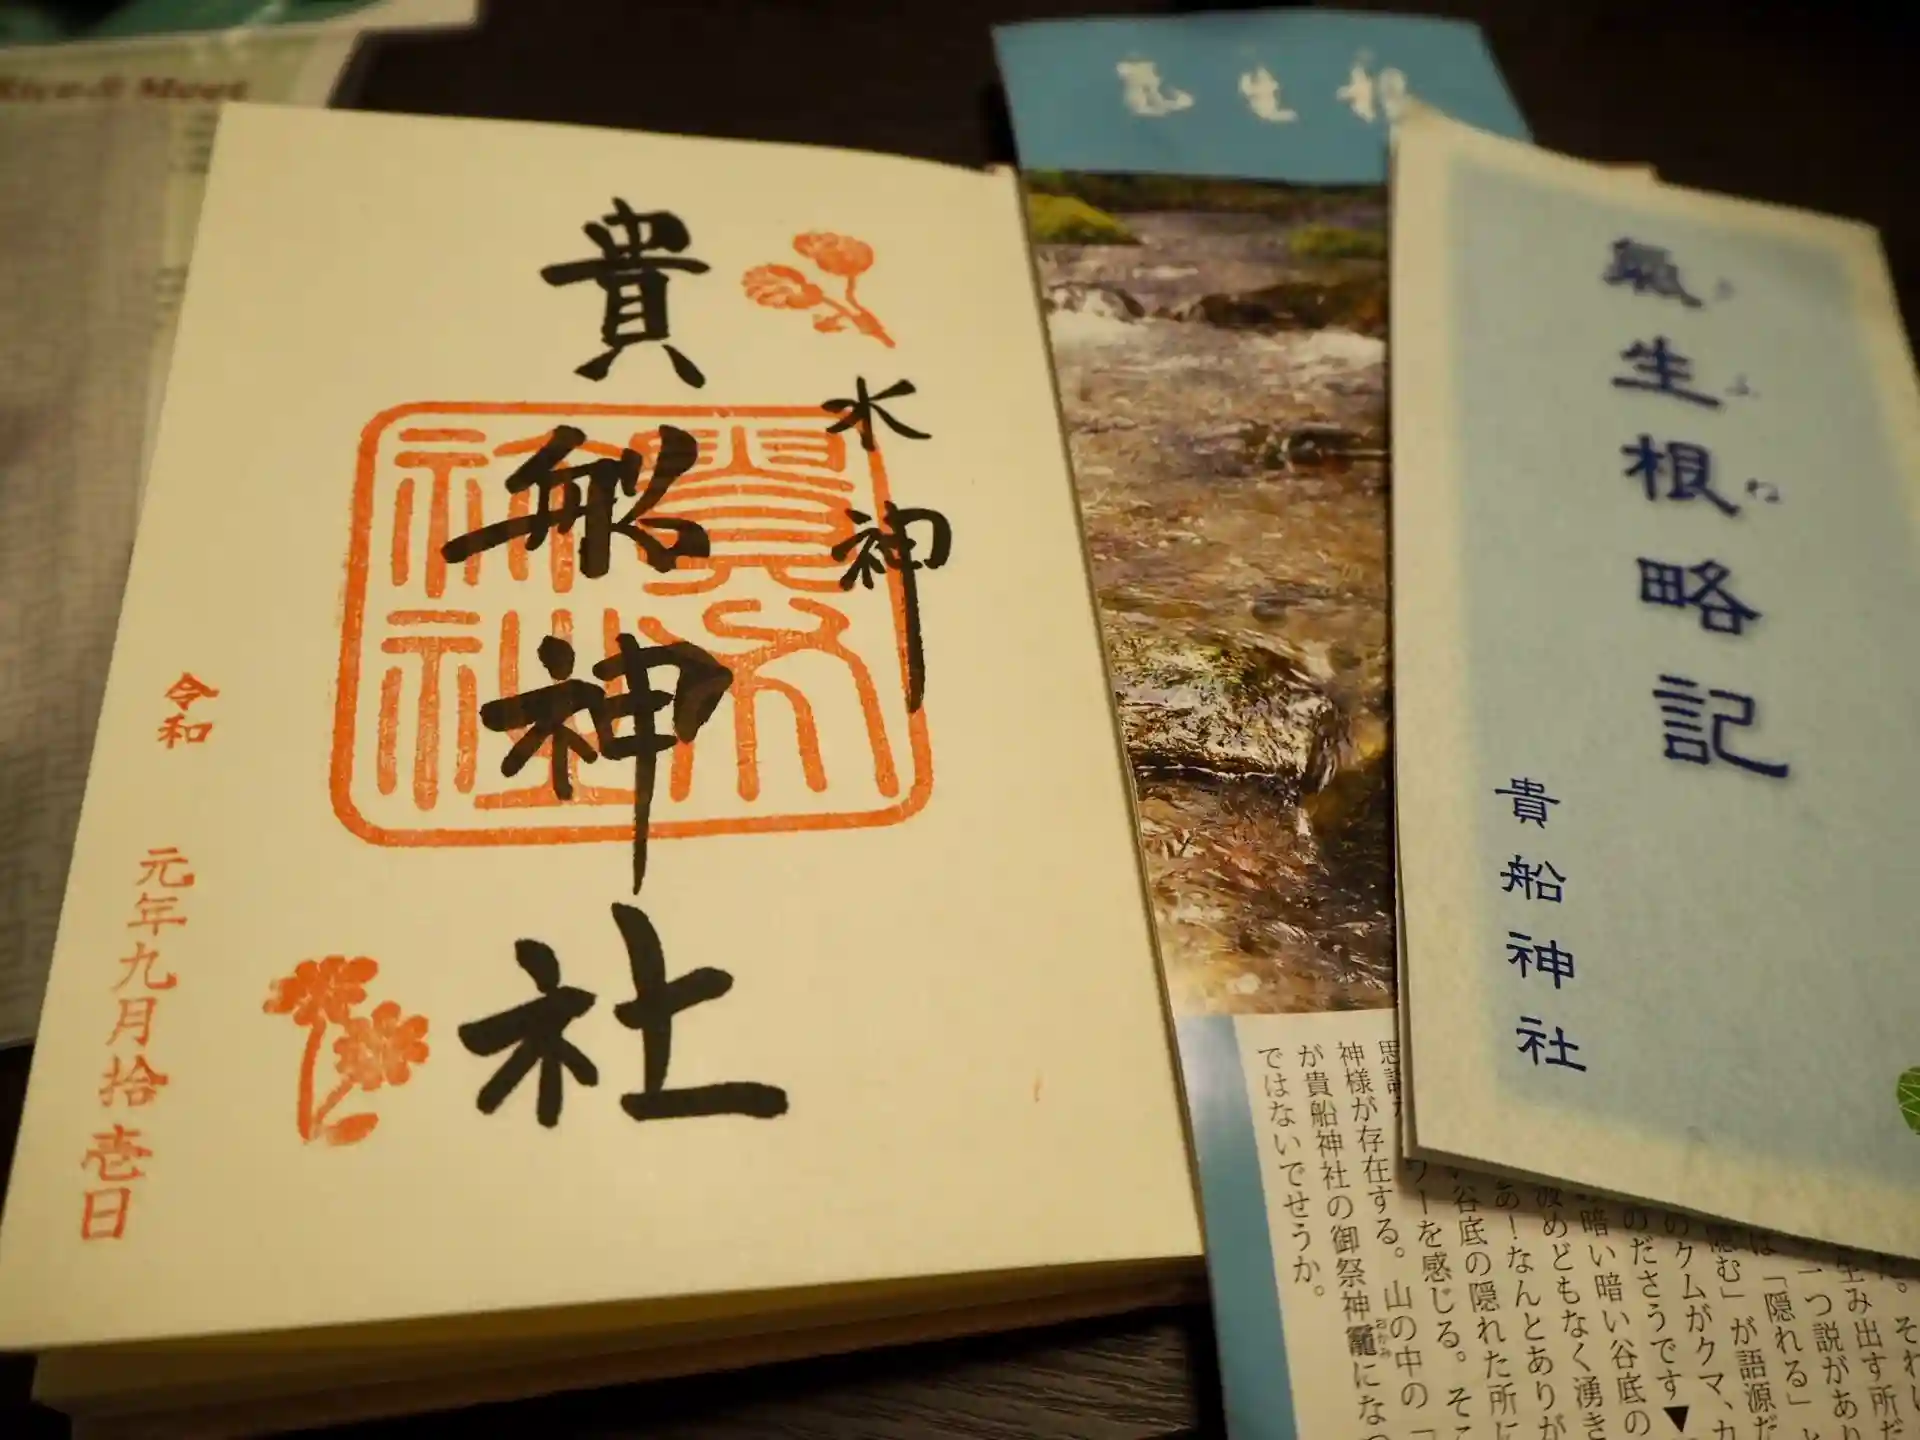 貴船神社
水神
貴布
祢社
令和 元年九月拾壱日
氣生根
氣生根略記
貴船神社
神様が存在する。山の中の「
が貴船神社の御祭神龗になつ
おかみ
ではないでせうか。
ワーを感じる。そこ
谷底の隠れた所に
あ！なんとありが
めどもなく湧き
暗い暗い谷底の
のださうです▼
のクムがクマ、カ
む」が語源だ
は「隠れる」と
一つ説があり
生み出す所だ